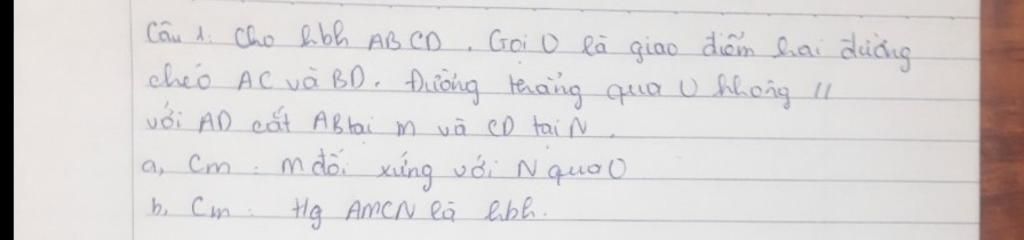 Câu 1. Cho hbh ABCD. Gọi O là giao điểm hai đường
chéo AC và BD. Đường thẳng qua O không //
với AD cắt AB tại M và CD tại N.
a, Cm : M đối xứng với N qua O
b, Cm : Hg AMCN là hbh.